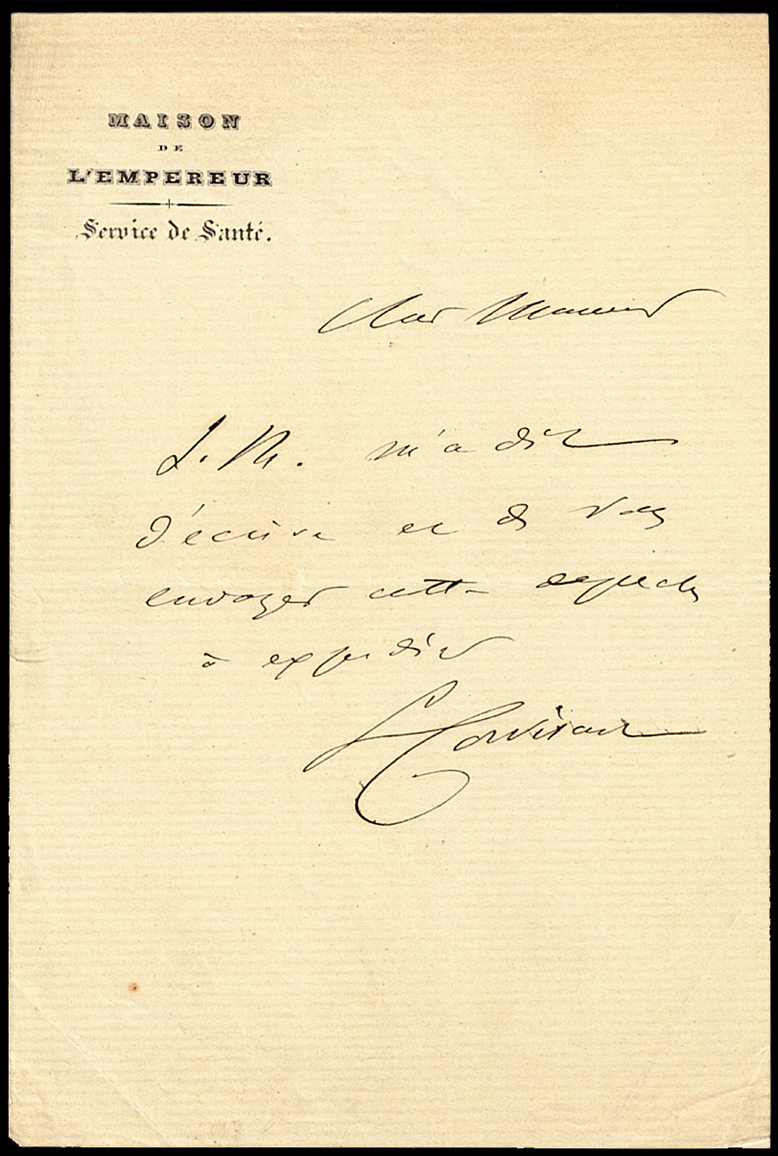 MAISON
DE
L'EMPEREUR
Service de Santé.
Cher Monsieur
S. M. m'a dit
d'écrire et de vous
envoyer cette dépêche
à expédier
L Corvisart